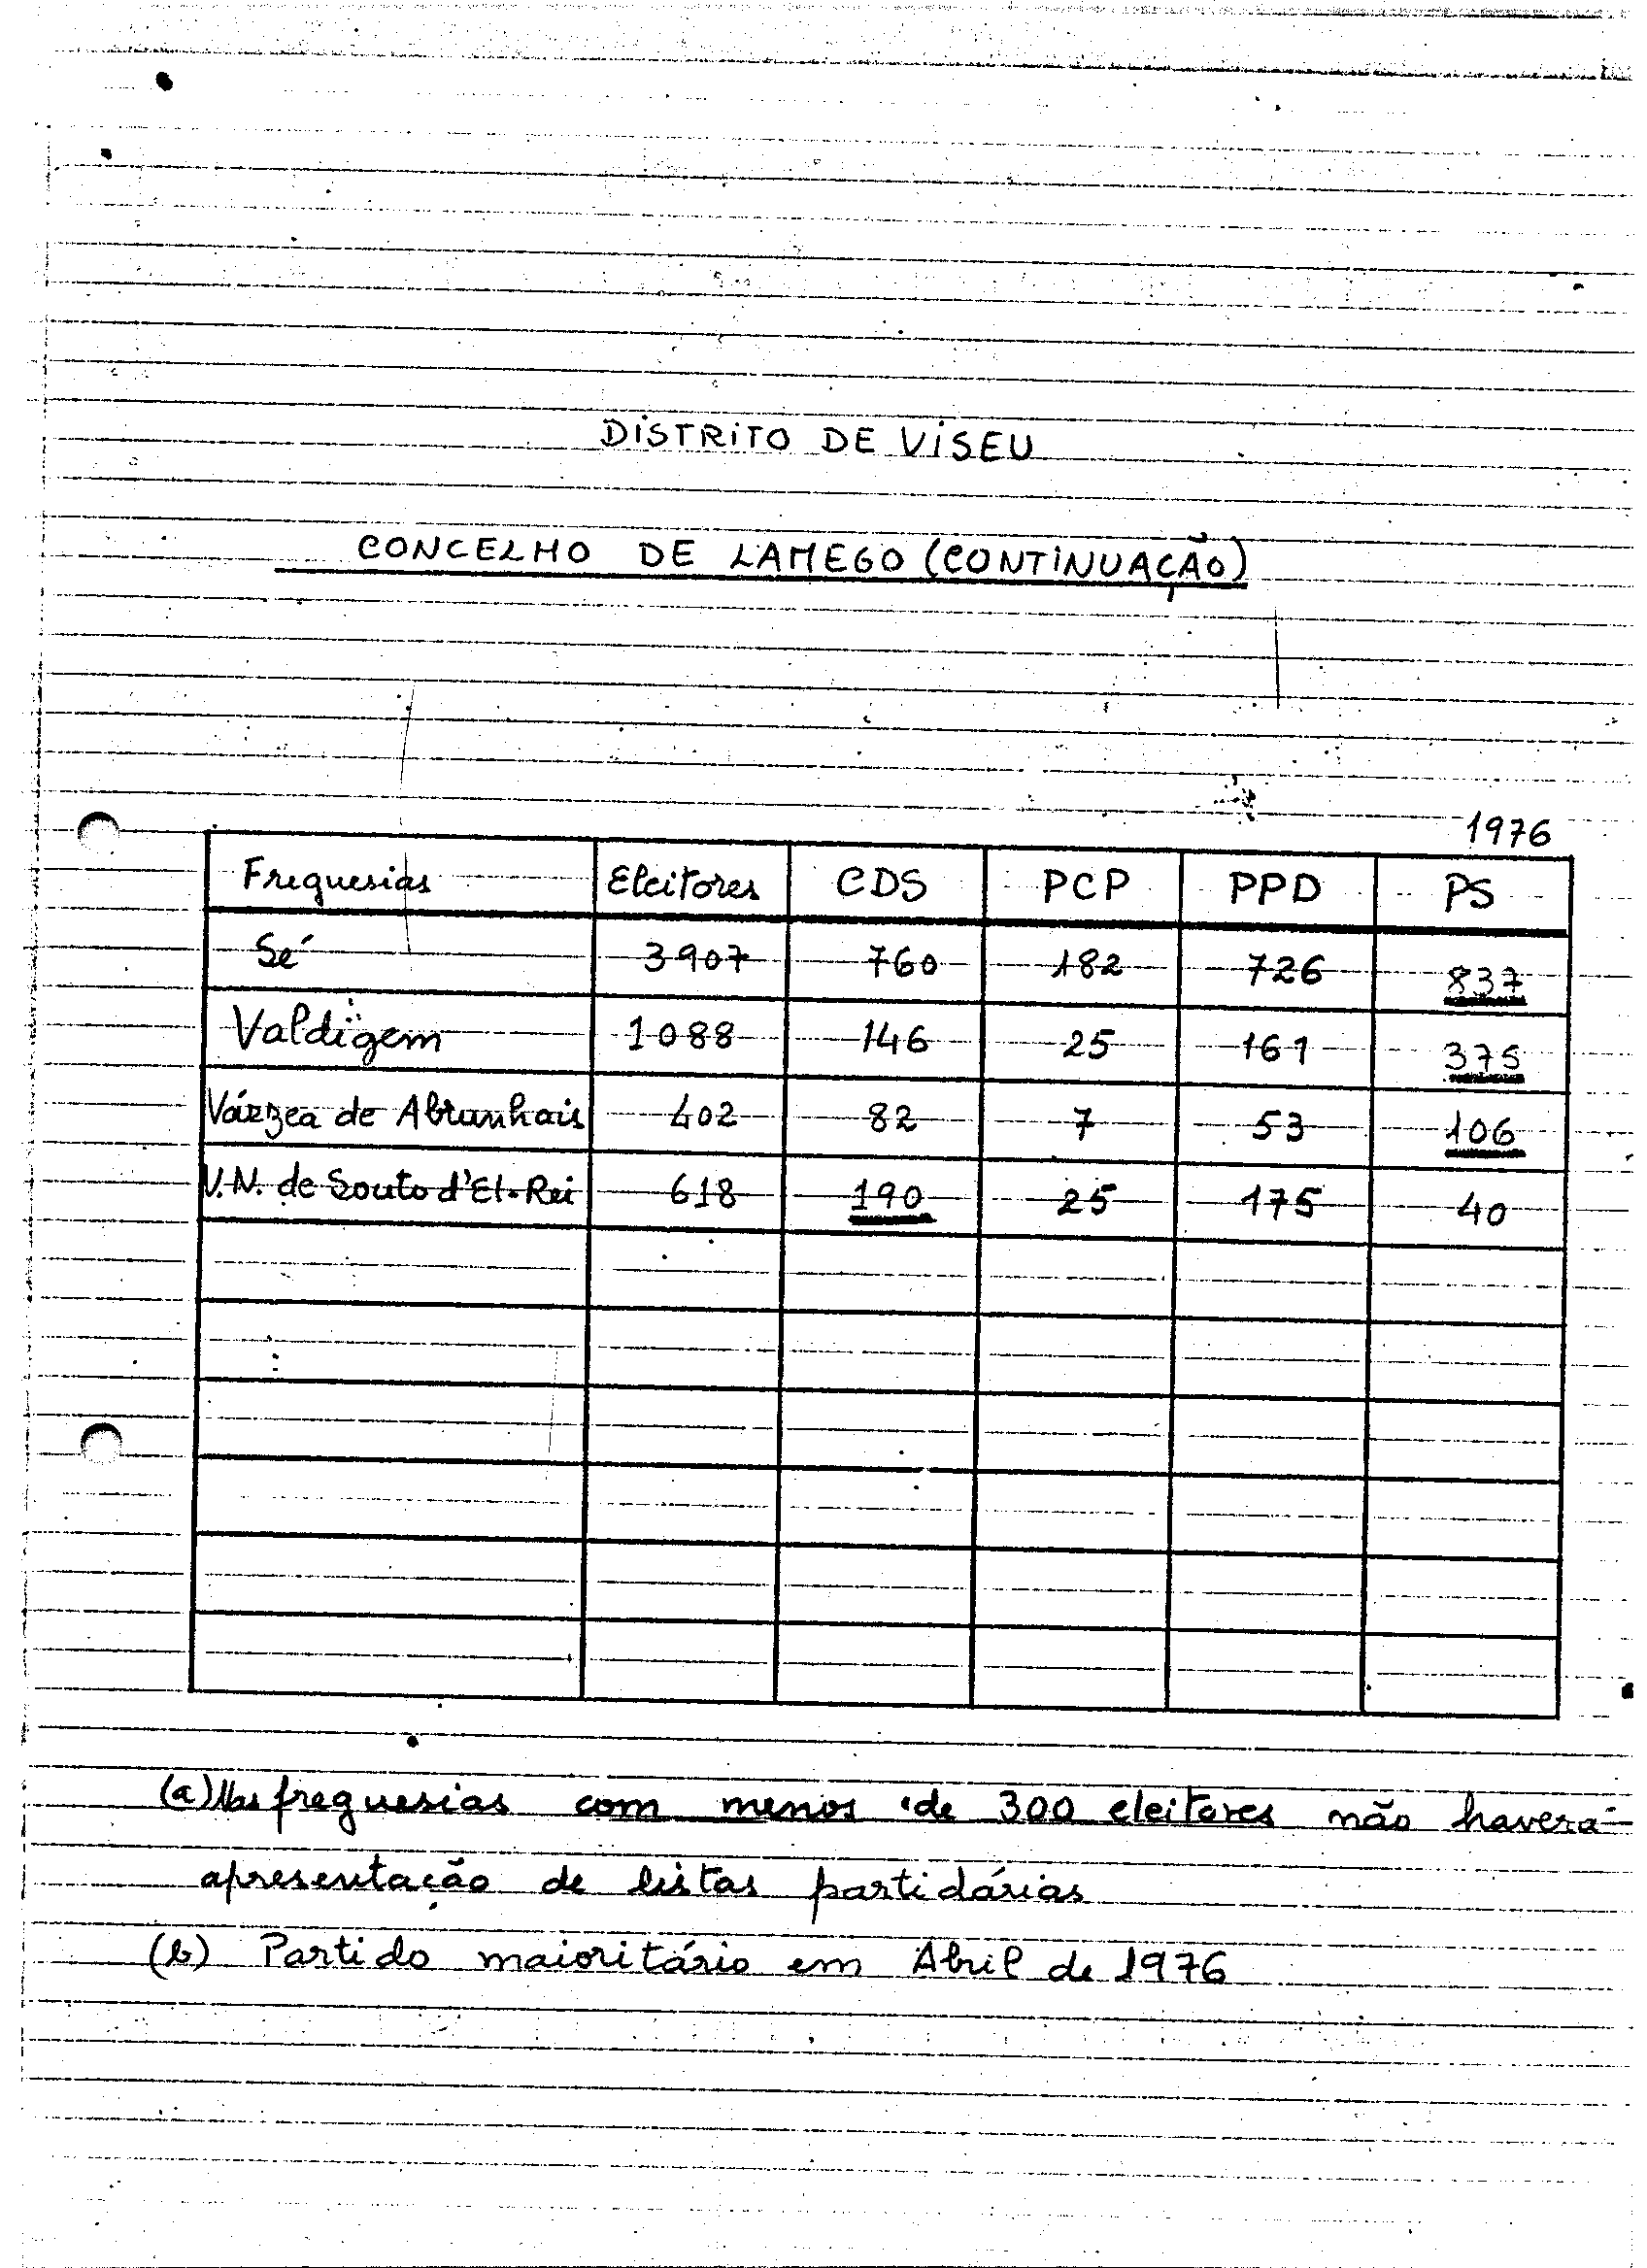 DISTRITO DE VISEU
CONCELHO DE LAMEGO (CONTINUAÇÃO)
1976
Freguesias Eleitores CDS PCP PPD PS
Sé 3907 760 182 726 837
Valdigem 1088 146 25 161 375
Várzea de Abrunhais 402 82 7 53 106
V.N. de Souto d'El-Rei 618 190 25 175 40
(a) Nas freguesias com menos de 300 eleitores não haverá
apresentação de listas partidárias
(b) Partido maioritário em Abril de 1976